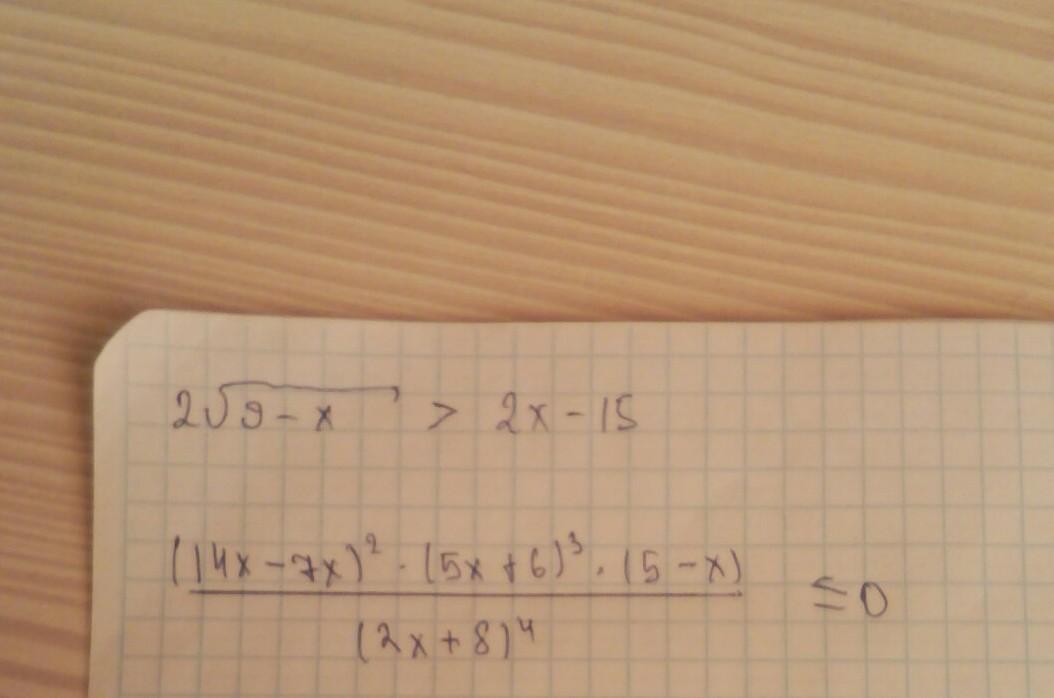 2√(9 - x) > 2x - 15
(14x - 7x)² · (5x + 6)³ · (5 - x) / (2x + 8)⁴ ≤ 0